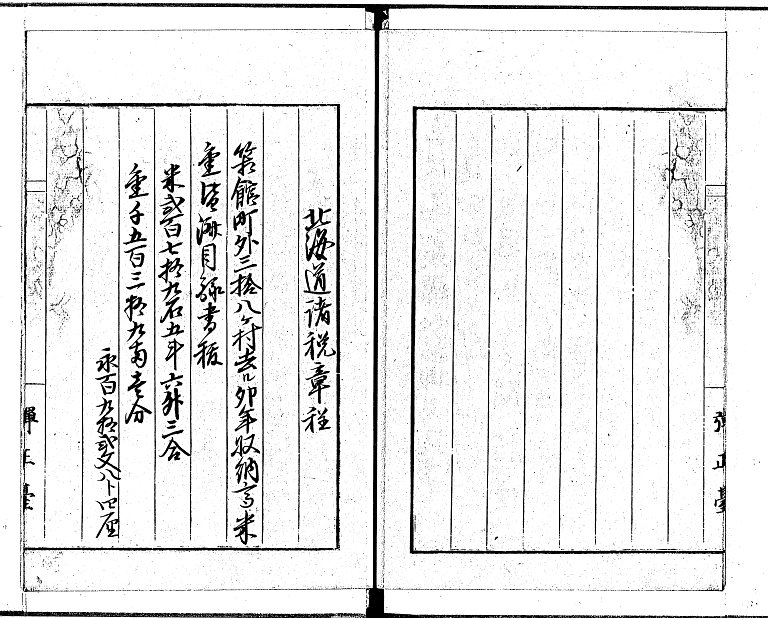 彈正臺
北海道諸税章程
箱館町外三拾八ヶ村去卯年収納高米
金皆済目録書抜
米弐百七拾九石五斗六升三合
金千五百三拾九両壱分
永百九拾弐文八分四厘
彈正臺